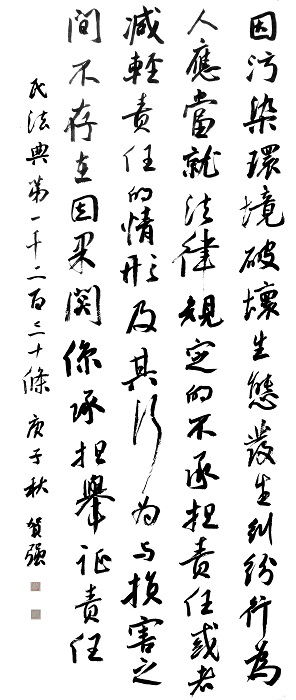 因污染環境破壞生態發生纠纷行為
人應當就法律規定的不承担責任或者
减輕責任的情形及其行为与损害之
間不存在因果関係承担舉证責任
民法典第一千二百三十條 庚子秋 贺强